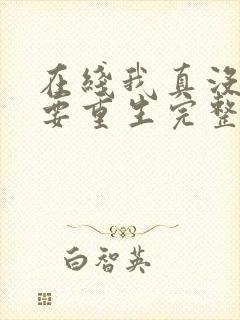 在线我真没
要重生完整
白智英